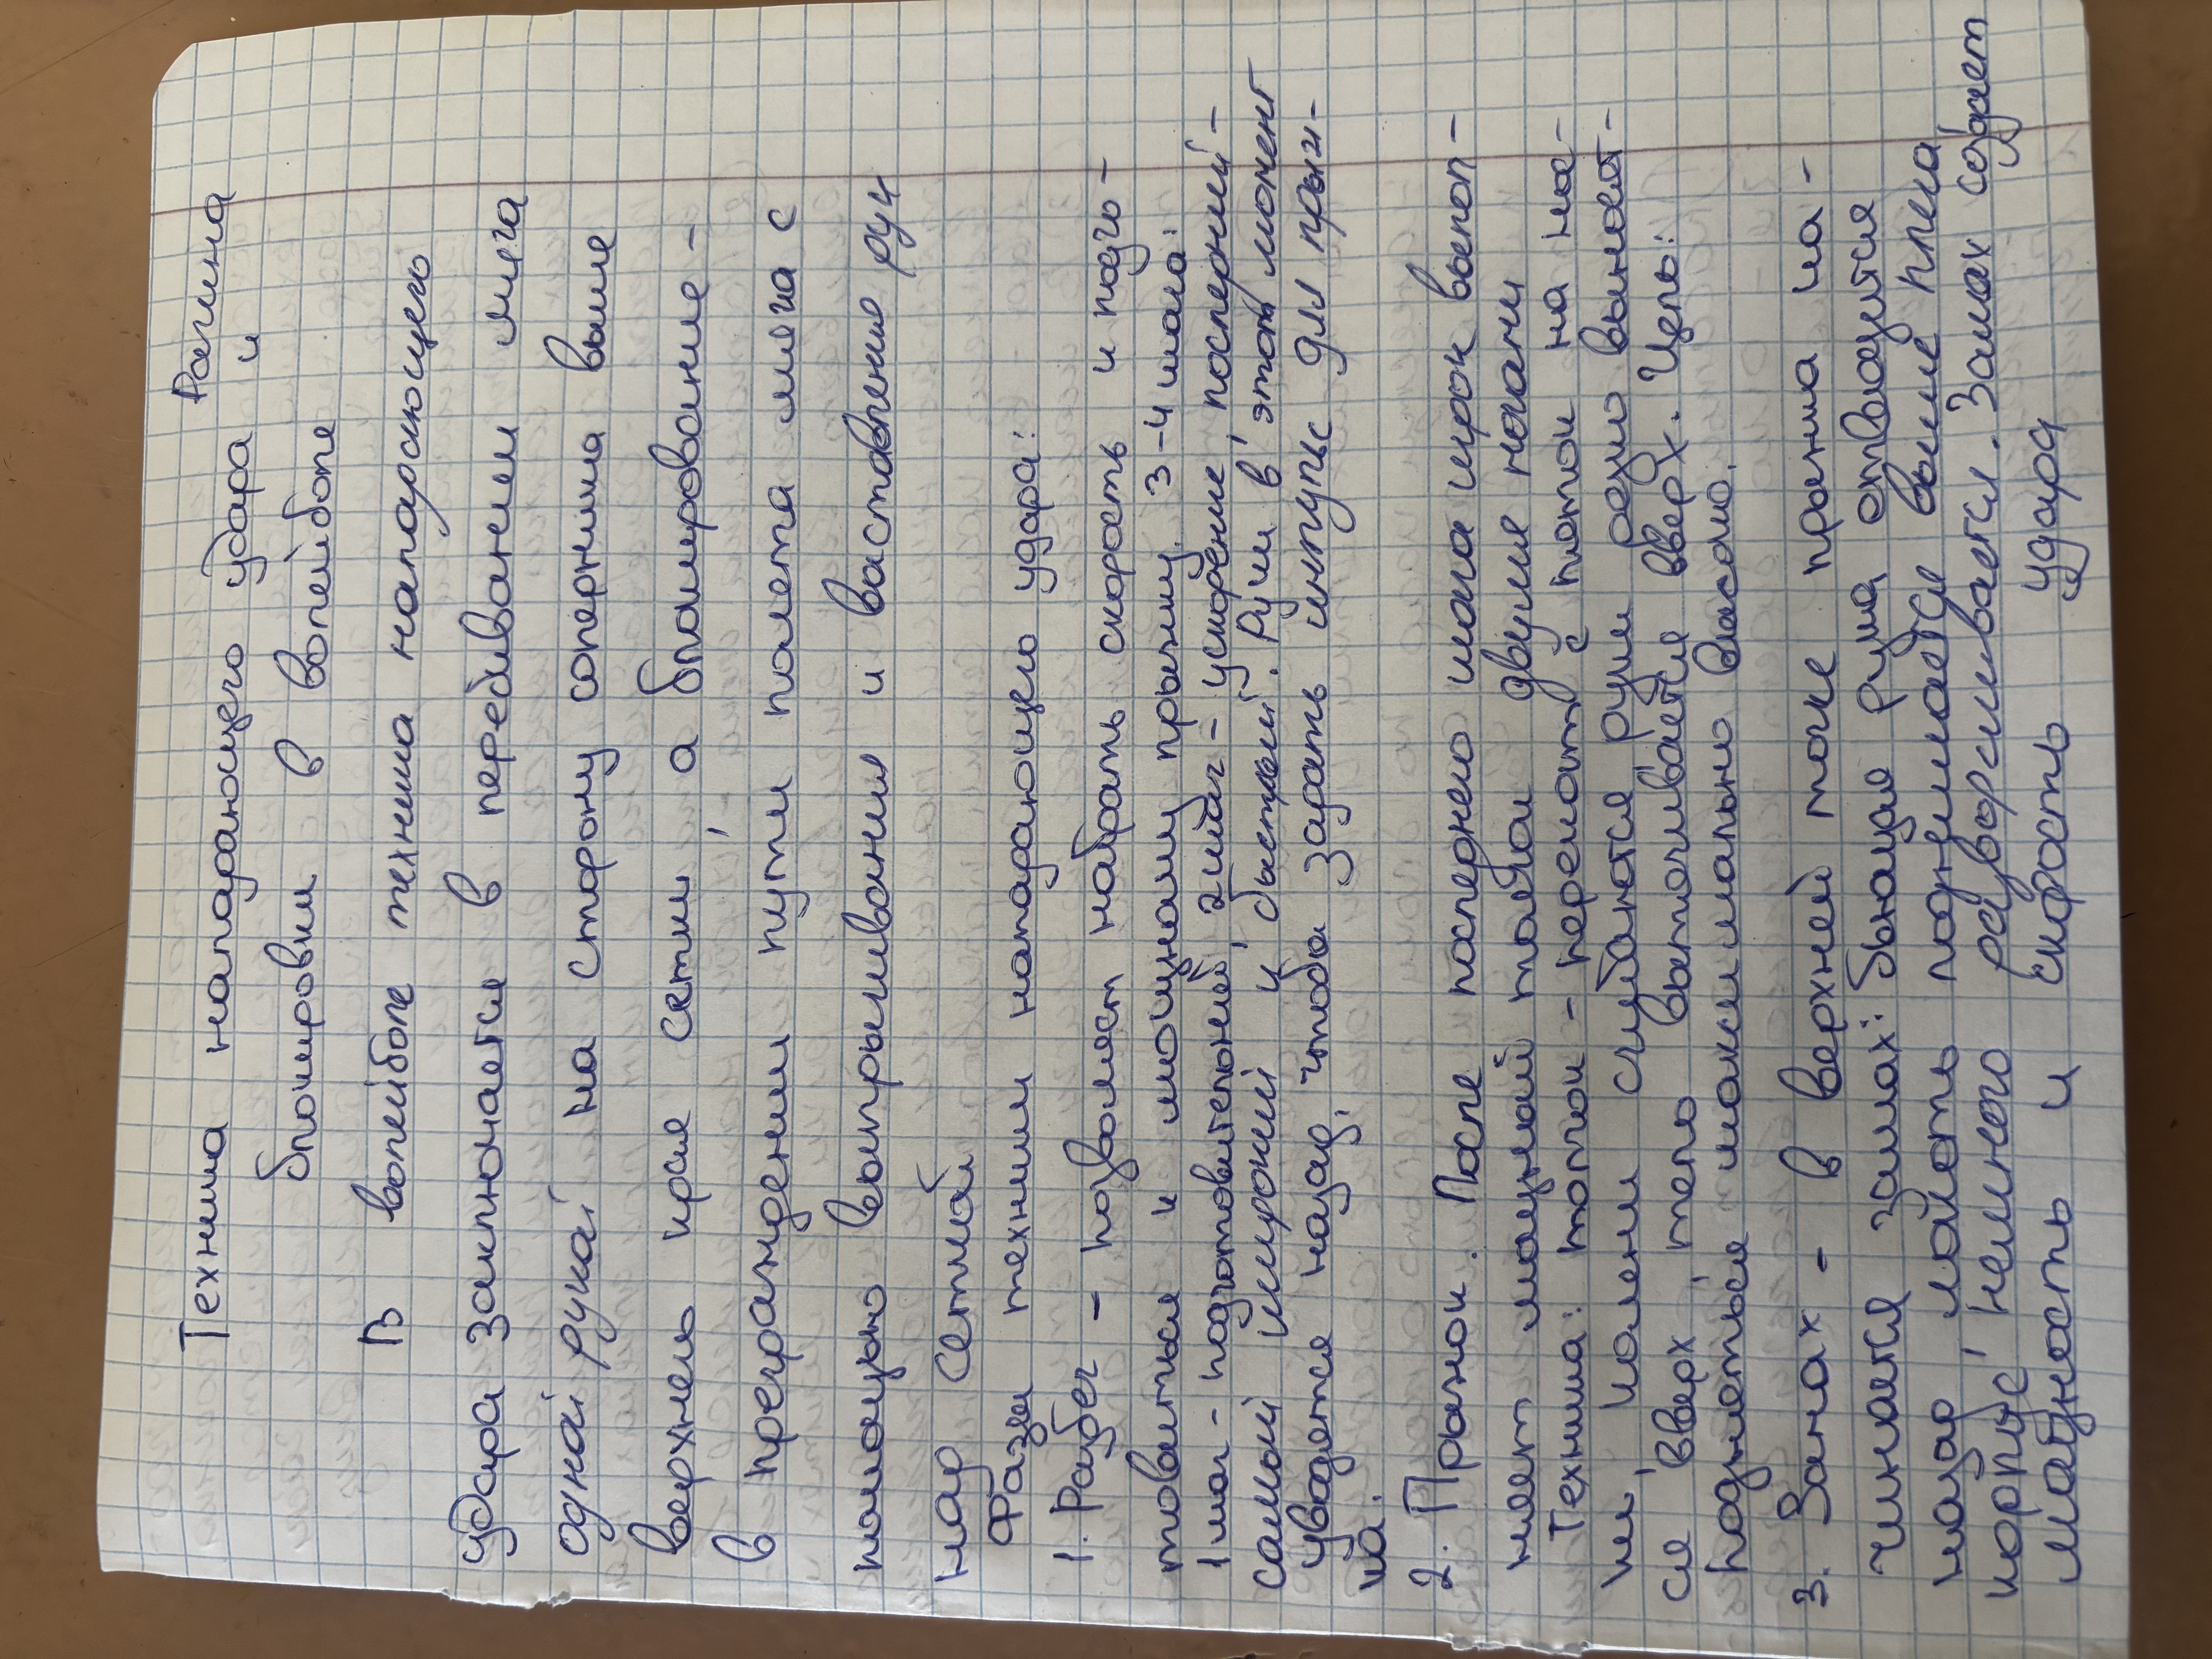 Рагина
Техника нападающего удара и
блокировки в волейболе
В волейболе техника нападающего
удара заключается в перебивании мяча
одной рукой на сторону соперника выше
верхнель края сетки, а блокирование -
в преграждении пути полета мяча с
помощью выпрыгивания и выставления рук
над сеткой
Фазы техники нападающего удара:
1. Разбег - позволяет набрать скорость и подго-
товиться к мощному прыжку. 3-4 шага:
1 шаг - подготовительный, 2 шаг - ускорение, последний -
самый широкий и быстрый. Руки в этот момент
уводятся назад, чтобы задать импульс для прыж-
ка.
2. Прыжок. После последнего шага игрок выпол-
няет мощный толчок двумя ногами
Техника: толчок - перекат с пятки на нос-
ки, колени сгибаются руки резко выносят-
ся вверх, тело выталкивается вверх. Цель:
подняться максимально высоко.
3. Замах - в верхней точке прыжка на-
чинается замах: бьющая рука отводится
назад локоть поднимается выше плеча,
корпус немного разворачивается. Замах создает
мощность и скорость удара